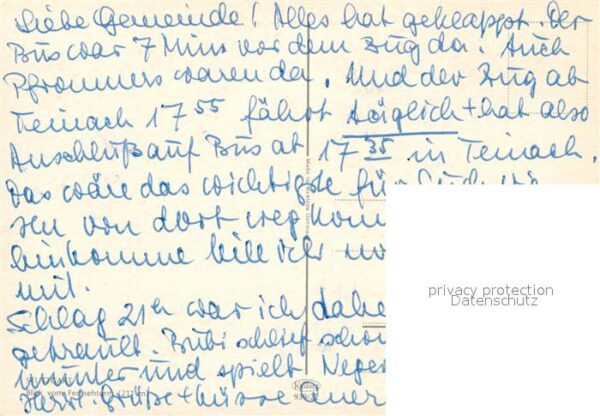 Liebe Gemeinde! Alles hat geklappt. Der
Bus war 7 Min vor dem Zug da. Auch
Pfrommers waren da. Und der Zug ab
Teinach 17 55 fährt täglich + hat also
Anschluß auf Bus ab 17 35 in Teinach.
Das wäre das wichtigste für
von dort weg kom
hinkomme teile ich
mit.
Schlag 21h war ich dahe
gebraust. Bubi schlief schon
munter und spielt Neger
Herzl. Grüße + Küsse euer
privacy protection
Datenschutz
Blick vom Fernsehturm (217 m)
Krüger